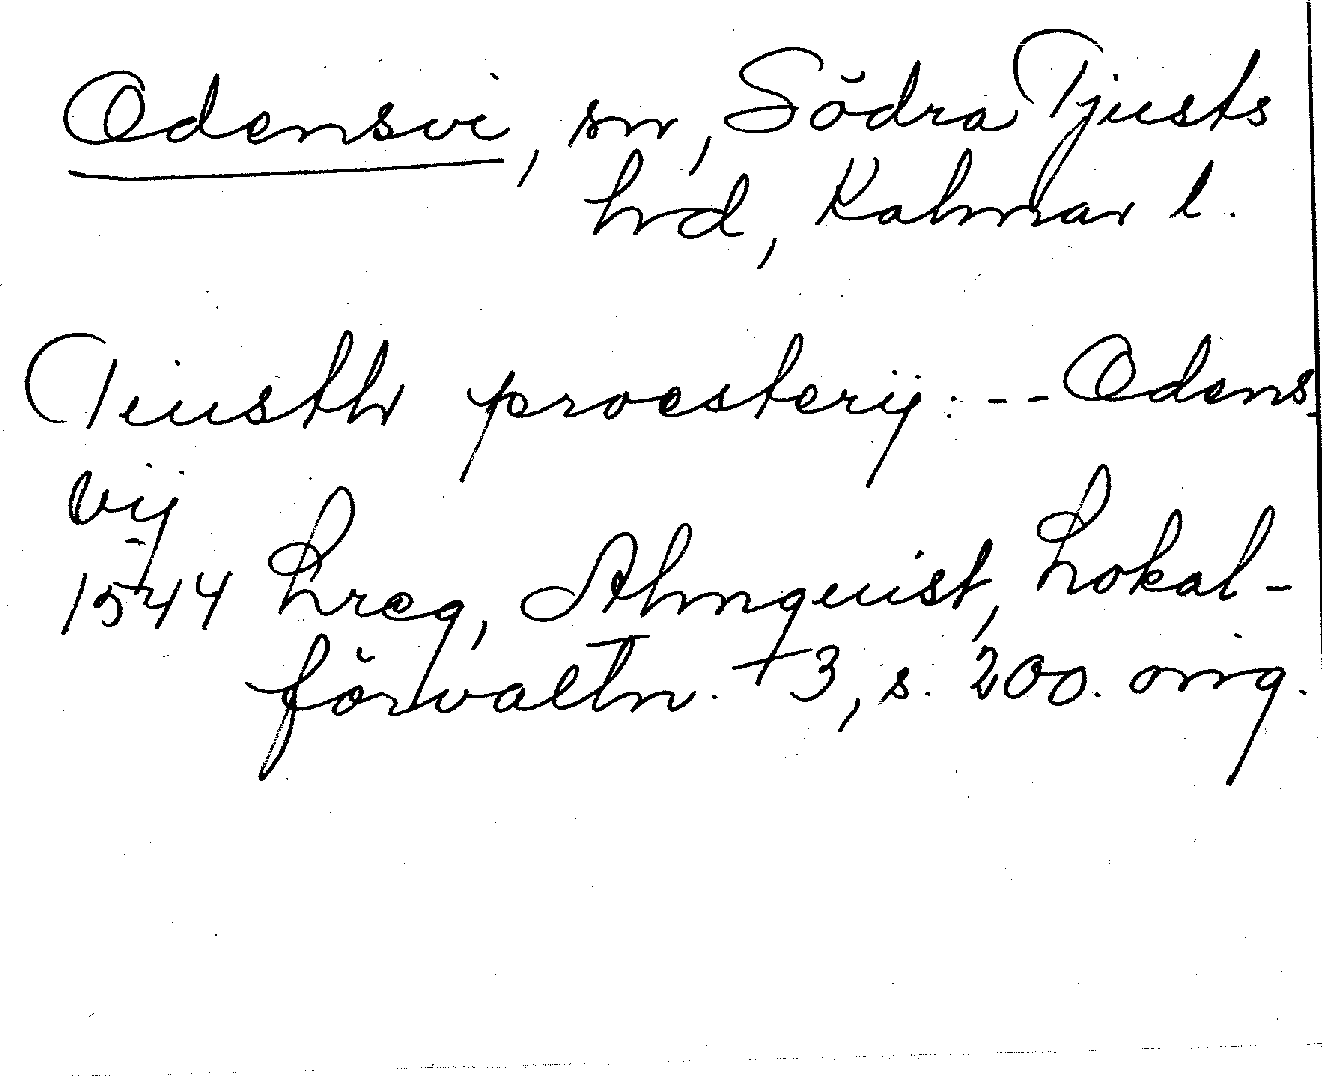 Odensvi, sn, Södra Tjusts
hrd, Kalmar l.
Tiusth proesterij: -- Odens-
vij
1544 Lreg, Almquist, Lokal-
förvaltn. +3, s. 200. orig.